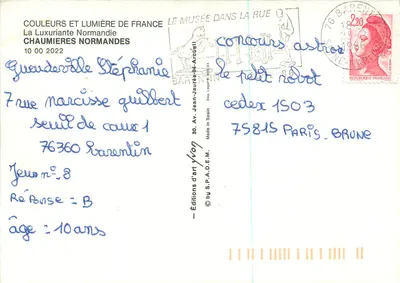 COULEURS ET LUMIÈRE DE FRANCE
La Luxuriante Normandie
CHAUMIÈRES NORMANDES
10 00 2022
Gueudeville Stéphanie
7 rue narcisse guilbert
seuil de caux 1
76360 Barentin
Jeu n° 8
Réponse = B
âge = 10 ans
Éditions d'art yvon
30, Av. Jean-Jaurès
Made in Spain
by S.P.A.D.E.M.
LE MUSÉE DANS LA RUE
BARENTIN
76 BARENTIN
2,20
concours astro
le petit robot
cedex 1503
75815 PARIS. BRUNE